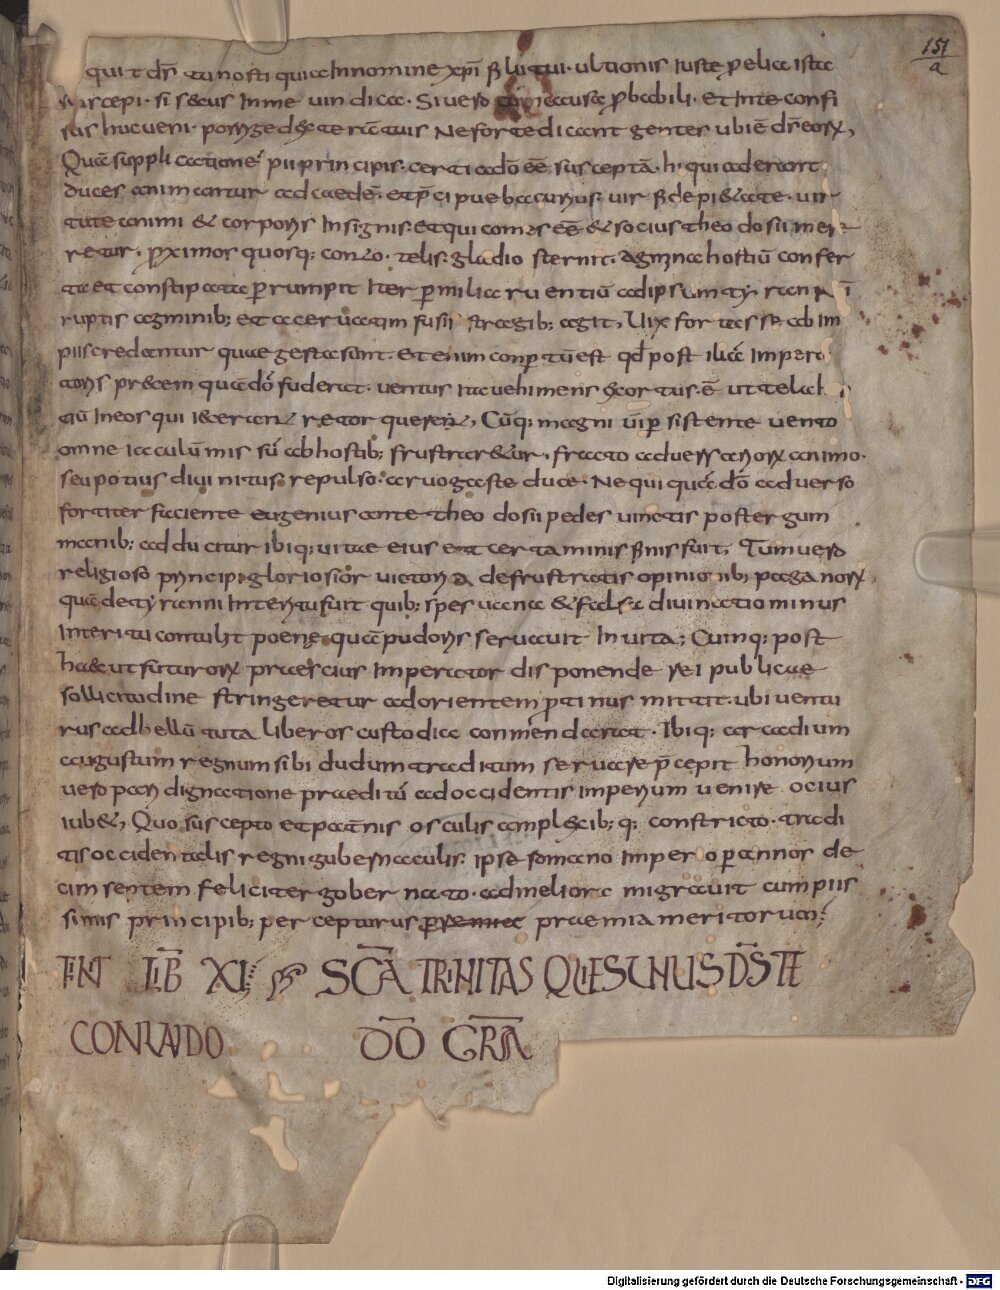 151
a
quit dr̄ tu nosti quia In nomine xp̄i filii tui. ultionis iuste proelia ista
suscepi. si secus In me uindica. Si uero cum causa p̄babili. et In te confi
sus huc ueni. porrige dexterā tuis Ne forte dicant gentes ubi ē dr̄ eorum,
Quā supplicationē pii principis. certi a dō eē susceptā. hi qui aderant
duces animantur ad caedē. et p̄cipue bacurius. uir fide pietate. uir
tute animi & corporis Insignis. Et qui comes eē & socius theodosii mer
retur. proximos quosq; conto. telis. gladio sternit. Agmina hostiū confer
ta et constipata perrumpit Iter per milia ruentiū ad ipsum tyrannū
ruptis agminib; et aceruatim fusis stragib; agit, Uix fortasse ab im
piis credantur quae gesta sunt. Etenim conpertū est qd̄ post illā Impera
toris precem quā dō fuderat. uentus ita uehimens exortus. ē ut tela hos
tiū In eos qui iecerant retorqueret, Cūq; magni ui persistente uento
omne iaculū missū ab hostib; frustraretur. fracto aduersariorum animo.
seu potius diuinitus repulso. aruogaste duce. Nequiquā dō aduerso
fortiter faciente eugenius ante theodosii pedes uinctis post tergum
manib; adducitur ibiq; uitae eius et certaminis finis fuit, Tum uero
religioso principi gloriosior uictoria de frustratis opinionib; paganorum
quā de tyranni Interitu fuit quib; spes uana & falsa diuinatio minus
Interitu contulit poenę quā pudoris seruauit In uita; Cumq; post
haec ut futurorum praescius Imperator disponende rei publicae
sollicitudine stringeretur ad orientem protinus mittit. ubi ventu
rus ad bellū tuta liberos custodia conmendarat. Ibiq; arcadium
augustum regnum sibi dudum traditum seruare p̄cepit honorium
uero pari dignatione praeditū ad occidentis Imperium uenire ocius
iubet, Quo suscepto et paternis osculis complexib; q; constricto. tradi
tis occidentalis regni gubernaculis. ipse romano Imperio per annos de
cim septem feliciter gobernato. ad meliora migrauit cum piis
simis principib; percepturus praemia praemia meritorum;
FINIT LIB̄ XI; SC̄A TRINITAS QUI ES UNUS DS̄ TE
CONLAUDO DŌ GRĀ
Digitalisierung gefördert durch die Deutsche Forschungsgemeinschaft - DFG